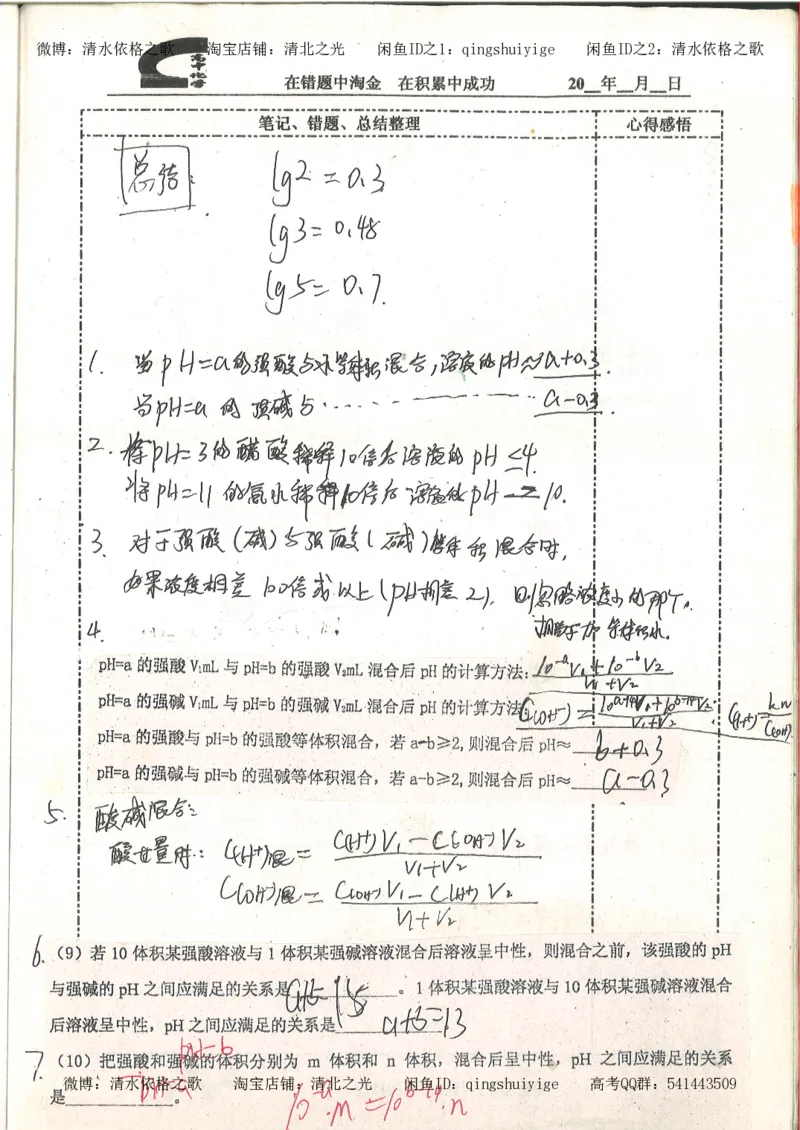 微博：清水依格之歌 淘宝店铺：清北之光 闲鱼ID之1：qingshuiyige 闲鱼ID之2：清水依格之歌
在错题中淘金 在积累中成功 20__年__月__日
笔记、错题、总结整理 心得感悟
总结：
lg2=0.3
lg3=0.48
lg5=0.7.
1. 当pH=a的强酸与水等体积混合,溶液的pH≈a+0.3.
当pH=a 的 强碱与······ a-0.3.
2. 将pH=3的醋酸稀释10倍后溶液的pH <4.
将pH=11的氨水稀释10倍后溶液的pH > 10.
3. 对于强酸(碱)与强酸(碱)等体积混合时,
如果浓度相差100倍或以上(pH相差2), 则忽略浓度小的那个。
相当于加等体积水.
4.
pH=a 的强酸 V₁mL 与 pH=b 的强酸 V₂mL 混合后 pH 的计算方法: (10⁻ᵃV₁+10⁻ᵇV₂)/(V₁+V₂)
pH=a 的强碱 V₁mL 与 pH=b 的强碱 V₂mL 混合后 pH 的计算方法: C(OH⁻)=(10ᵃ⁻¹⁴V₁+10ᵇ⁻¹⁴V₂)/(V₁+V₂) C(H⁺)=kw/C(OH⁻)
pH=a 的强酸与 pH=b 的强酸等体积混合，若 a-b≥2,则混合后 pH≈ b+0.3
pH=a 的强碱与 pH=b 的强碱等体积混合，若 a-b≥2,则混合后 pH≈ a-0.3
5. 酸碱混合:
酸过量时: C(H⁺)混= (C(H⁺)V₁-C(OH⁻)V₂)/(V₁+V₂)
C(OH⁻)混= (C(OH⁻)V₁-C(H⁺)V₂)/(V₁+V₂)
6. (9) 若 10 体积某强酸溶液与 1 体积某强碱溶液混合后溶液呈中性，则混合之前，该强酸的 pH
与强碱的 pH 之间应满足的关系是 a+b=15 。1 体积某强酸溶液与 10 体积某强碱溶液混合
后溶液呈中性，pH 之间应满足的关系是 a+b=13
pH=b
7. (10) 把强酸和强碱的体积分别为 m 体积和 n 体积，混合后呈中性，pH 之间应满足的关系
pH=a
微博：清水依格之歌 淘宝店铺：清北之光 闲鱼ID：qingshuiyige 高考QQ群：541443509
是____。 10⁻ᵃ·m=10ᵇ⁻¹⁴·n